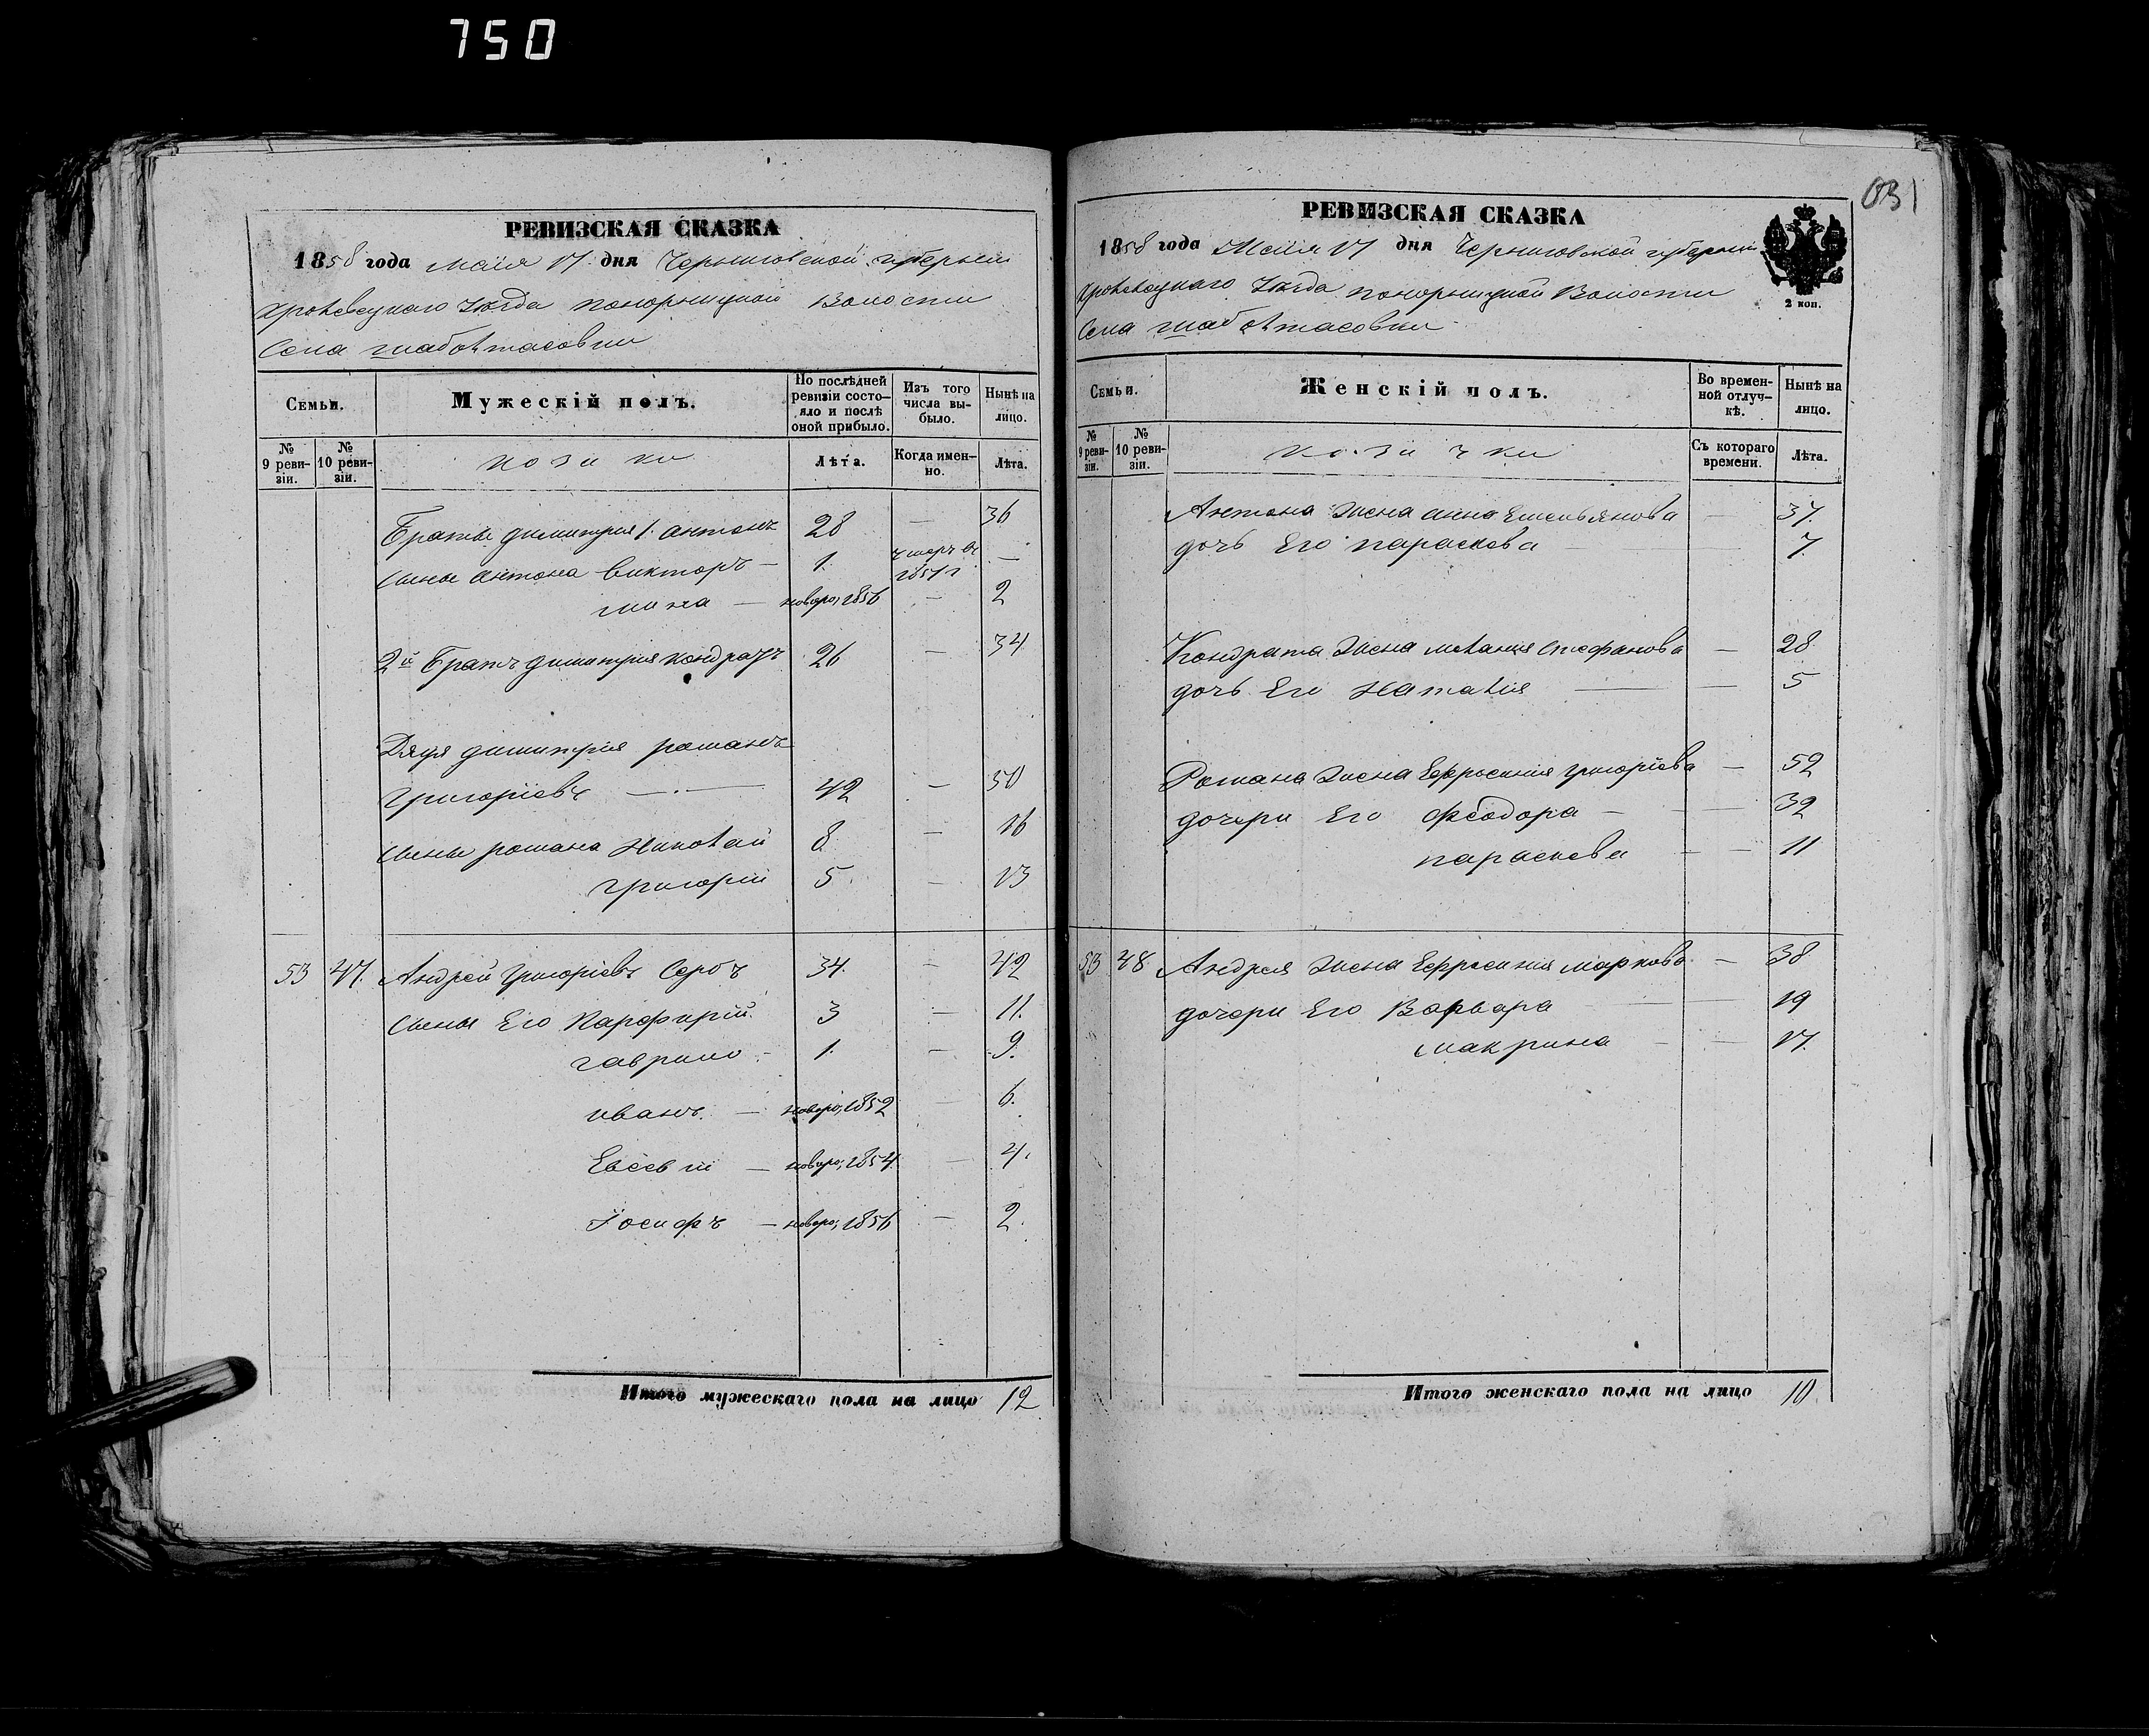 750
РЕВИЗСКАЯ СКАЗКА
1858 года Маія 17 дня Черниговской губерніи
Кролевецкаго Уѣзда Понорницкой Волости
Села
Семьи.
Мужескій полъ.
По послѣдней ревизіи состояло и послѣ оной прибыло.
Изъ того числа выбыло.
Нынѣ на лицо.
№ 9 ревизіи.
№ 10 ревизіи.
козаки
Лѣта.
Когда именно.
Лѣта.
Братья димитрія 1. антонъ 28 — 36
Сыны антона викторъ — 1. умеръ въ 1851 г —
мина — новоро; 1856 — 2
2й Братъ димитрія кондратъ 26 — 34
Дядя димитрія романъ
григоріевъ — 42 — 50
Сыны романа Николай 8 — 16
григорій 5. — 13
53 47. Андрей григоріевъ Сербъ 34. — 42
Сыны Его Парфирій 3 — 11.
гаврило — 1. — 9.
иванъ. — новоро; 1852 — 6.
Евсевій — новоро; 1854 — 4.
Іосифъ — новоро; 1856 — 2.
Итого мужескаго пола на лицо 12
РЕВИЗСКАЯ СКАЗКА
1858 года Маія 17 дня Черниговской губерніи
Кролевецкаго Уѣзда Понорницкой Волости
Села
2 коп.
Семьи.
Женскій полъ.
Во временной отлучкѣ.
Нынѣ на лицо.
№ 9 ревизіи.
№ 10 ревизіи.
козачки
Съ котораго времени.
Лѣта.
Антона жена анна Емельянова — 37.
дочь Его параскева — 7.
Кондрата жена меланія Стефанова — 28
дочь Его Наталія — — 5
Романа жена Ефросинія григоріева — 52
дочери Его феодора — — 32
параскева — — 11
53 48 Андрея жена Ефросинія маркова — 38
дочери Его Варвара — — 19
макрина — — 17.
Итого женскаго пола на лицо 10